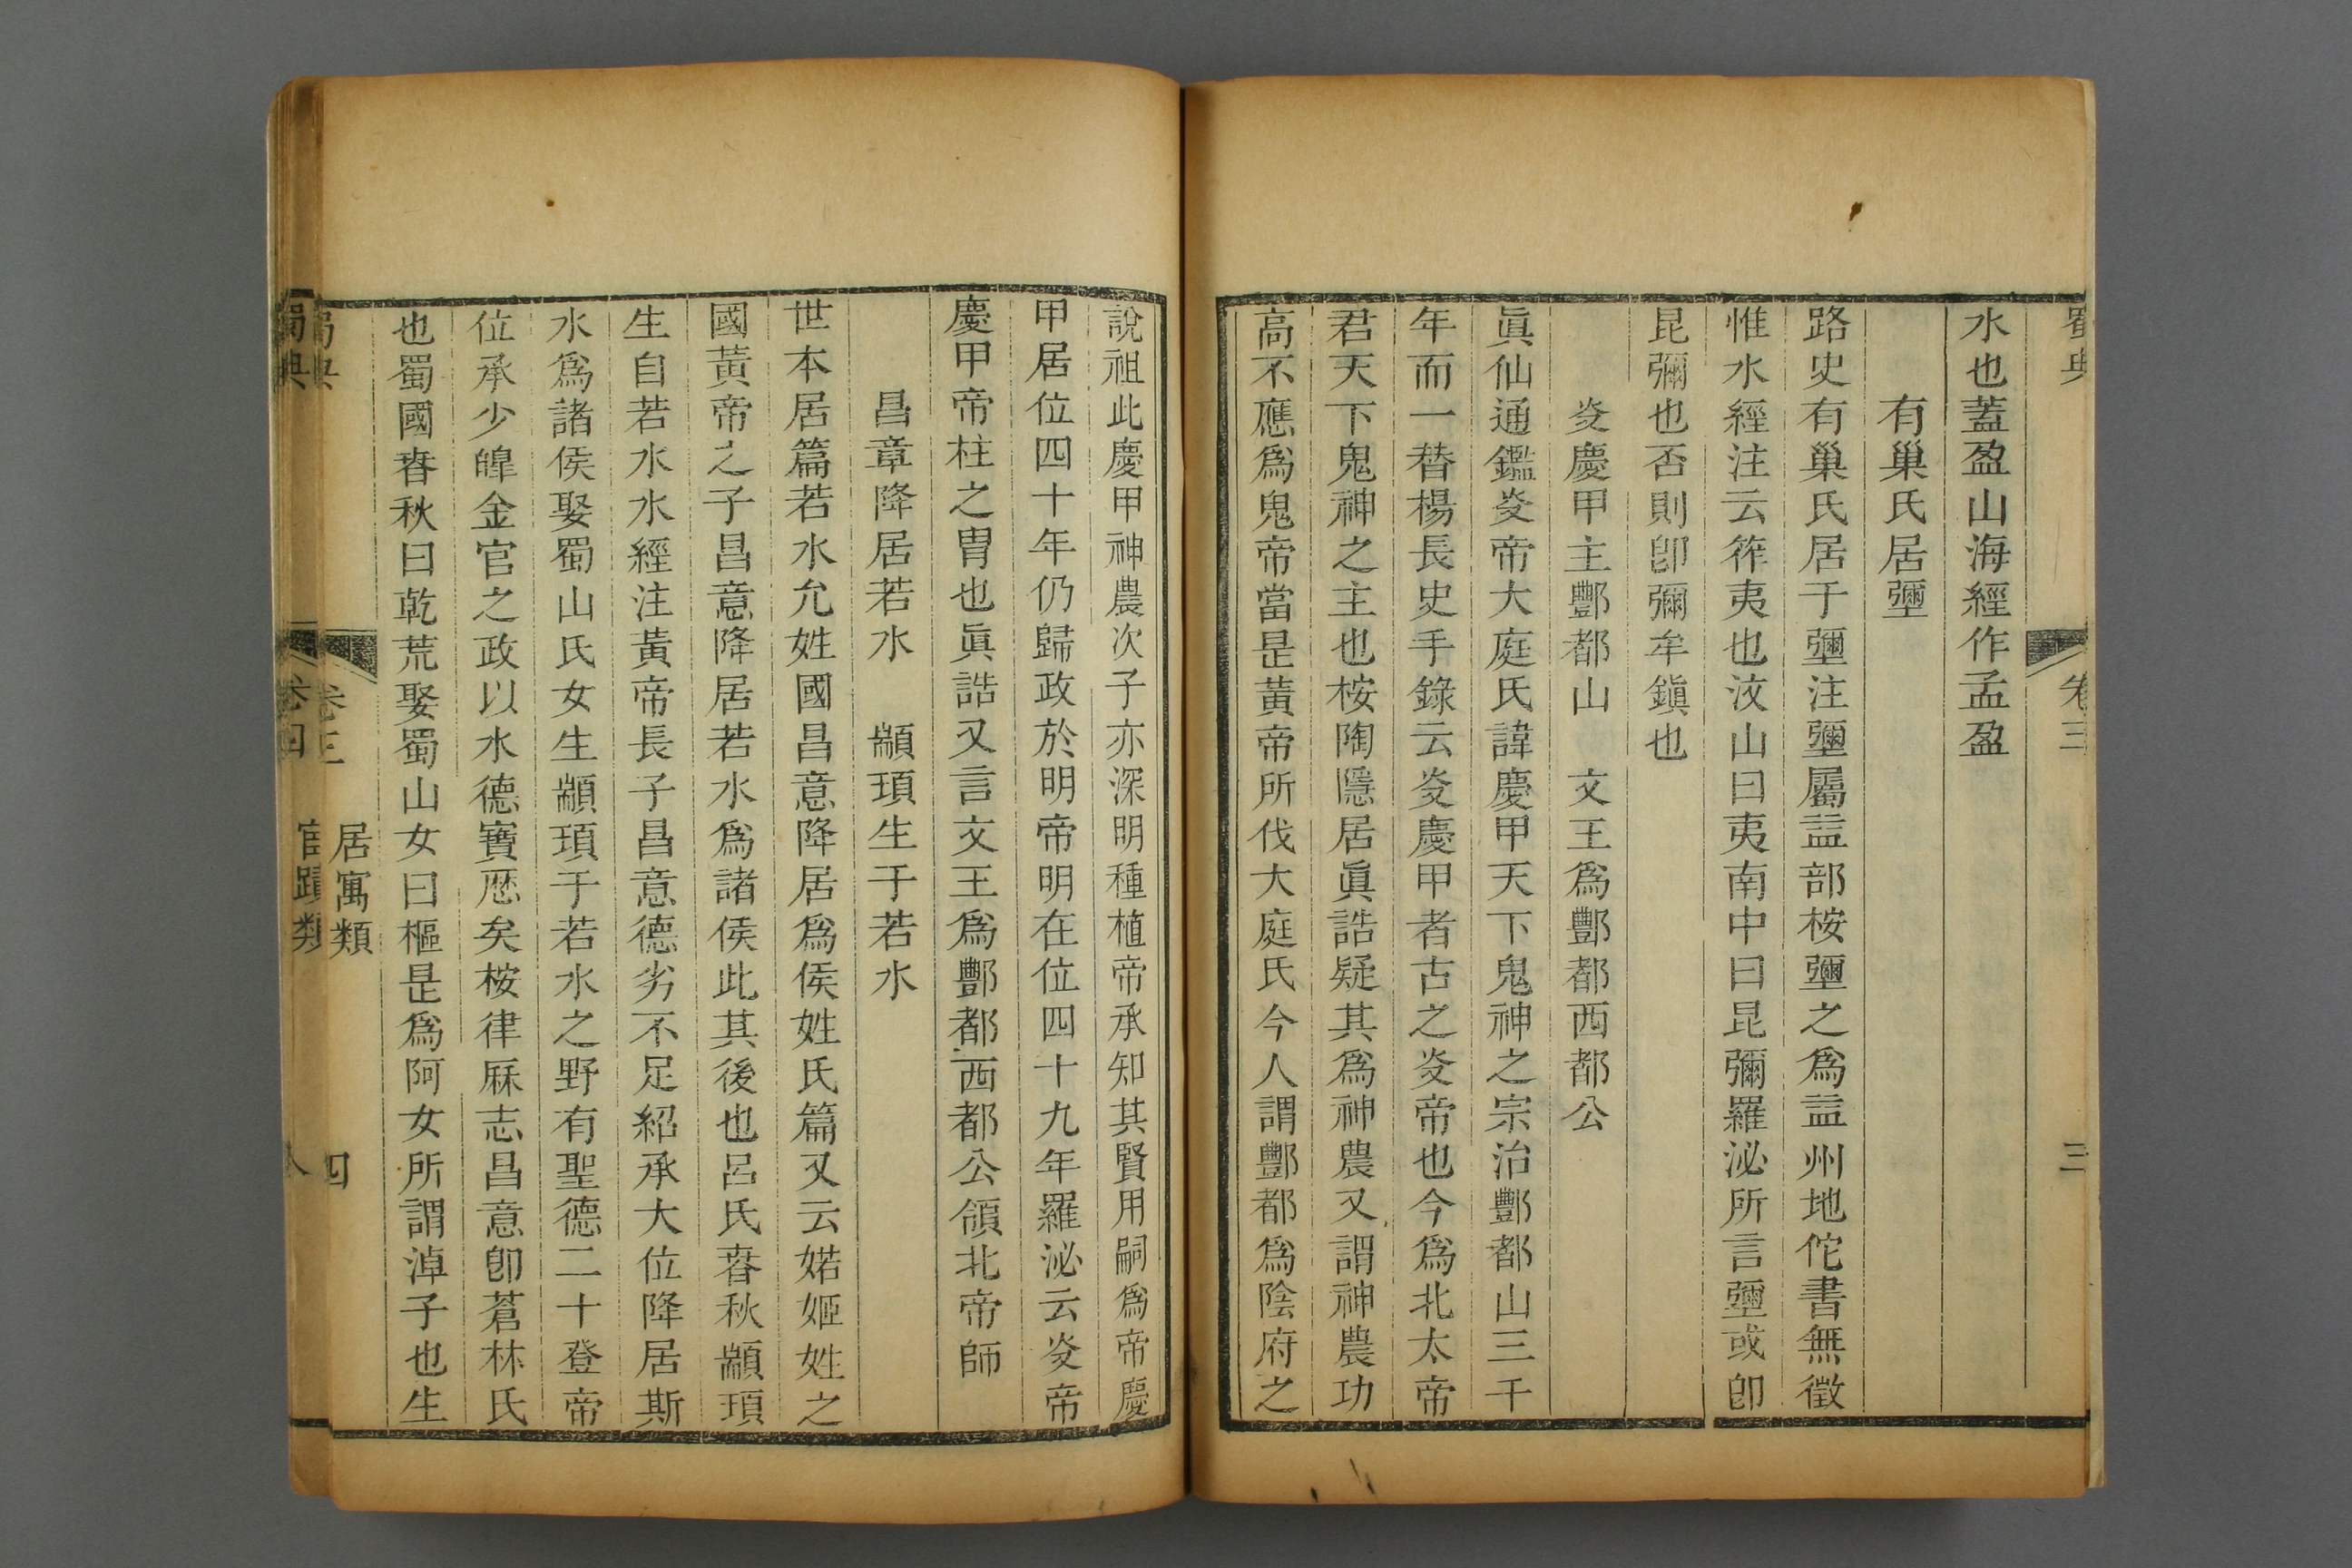 蜀典
卷三
三
水也蓋盈山海經作孟盈
有巢氏居壐
路史有巢氏居于壐注壐屬益部桉壐之爲益州地佗書無徵
惟水經注云筰夷也汶山曰夷南中曰昆彌羅泌所言壐或卽
昆彌也否則卽彌牟鎭也
炎慶甲主酆都山　文王爲酆都西都公
眞仙通鑑炎帝大庭氏諱慶甲天下鬼神之宗治酆都山三千
年而一替楊長史手錄云炎慶甲者古之炎帝也今爲北太帝
君天下鬼神之主也桉陶隱居眞誥疑其爲神農又謂神農功
高不應爲鬼帝當是黃帝所伐大庭氏今人謂酆都爲陰府之
說祖此慶甲神農次子亦深明種植帝承知其賢用嗣爲帝慶
甲居位四十年仍歸政於明帝明在位四十九年羅泌云炎帝
慶甲帝柱之胄也眞誥又言文王爲酆都西都公領北帝師
昌章降居若水　顓頊生于若水
世本居篇若水允姓國昌意降居爲侯姓氏篇又云婼姬姓之
國黃帝之子昌意降居若水爲諸侯此其後也呂氏春秋顓頊
生自若水水經注黃帝長子昌意德劣不足紹承大位降居斯
水爲諸侯娶蜀山氏女生顓頊于若水之野有聖德二十登帝
位承少皥金官之政以水德寶歷矣桉律厤志昌意卽蒼林氏
也蜀國春秋曰乾荒娶蜀山女曰樞是爲阿女所謂淖子也生
蜀典
卷三
居寓類
四
蜀典
卷四
宦蹟類